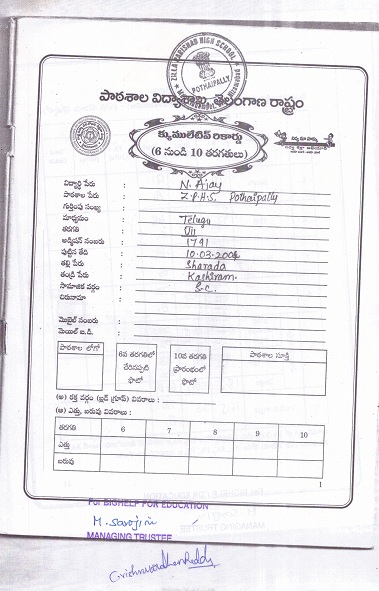 ZILLA PARISHAD HIGH SCHOOL
POTHAIPALLY
పాఠశాల విద్యాశాఖ, తెలంగాణ రాష్ట్రం
క్యుములేటివ్ రికార్డు
(6 నుండి 10 తరగతులు)
విద్యార్థి పేరు : N. Ajay
పాఠశాల పేరు : Z.P.H.S. Pothaipally
గుర్తింపు సంఖ్య :
మాధ్యమం : Telugu
తరగతి : VII
అడ్మిషన్ నంబరు : 1791
పుట్టిన తేది : 10.03.2004
తల్లి పేరు : Sharada
తండ్రి పేరు : Kashiram.
సామాజిక వర్గం : S.C.
చిరునామా :
మొబైల్ నంబరు :
మెయిల్ ఐ.డి. :
పాఠశాల లోగో
6వ తరగతిలో చేరినప్పటి ఫొటో
10వ తరగతి ప్రారంభంలో ఫొటో
పాఠశాల సూక్తి
(అ) రక్త వర్గం (బ్లడ్ గ్రూప్) వివరాలు :
(ఆ) ఎత్తు, బరువు వివరాలు :
తరగతి 6 7 8 9 10
ఎత్తు
బరువు
1
For BIGHELP FOR EDUCATION
M. Sarojini
MANAGING TRUSTEE
G.vishnuvardhanReddy